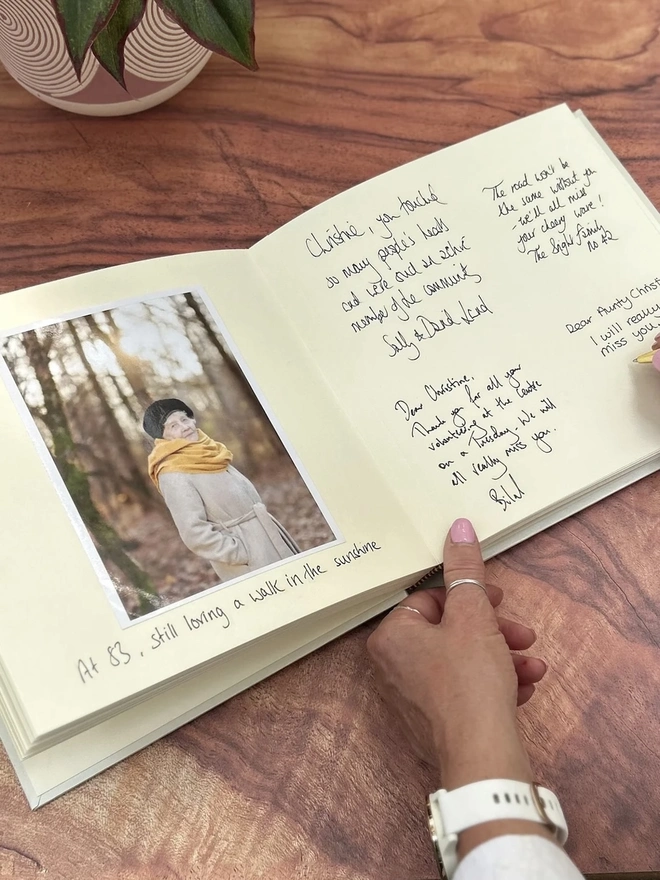 At 83, still loving a walk in the sunshine
Christine, you touched
so many people's hearts
and were such an active
member of the community
Sally & David Lund
Dear Christine,
Thank you for all your
volunteering at the Centre
on a Tuesday. We will
all really miss you.
Bilal
The road won't be
the same without you
- we'll all miss
your cheery wave!
The Bright Family
no 42
Dear Aunty Christ
I will really
miss you